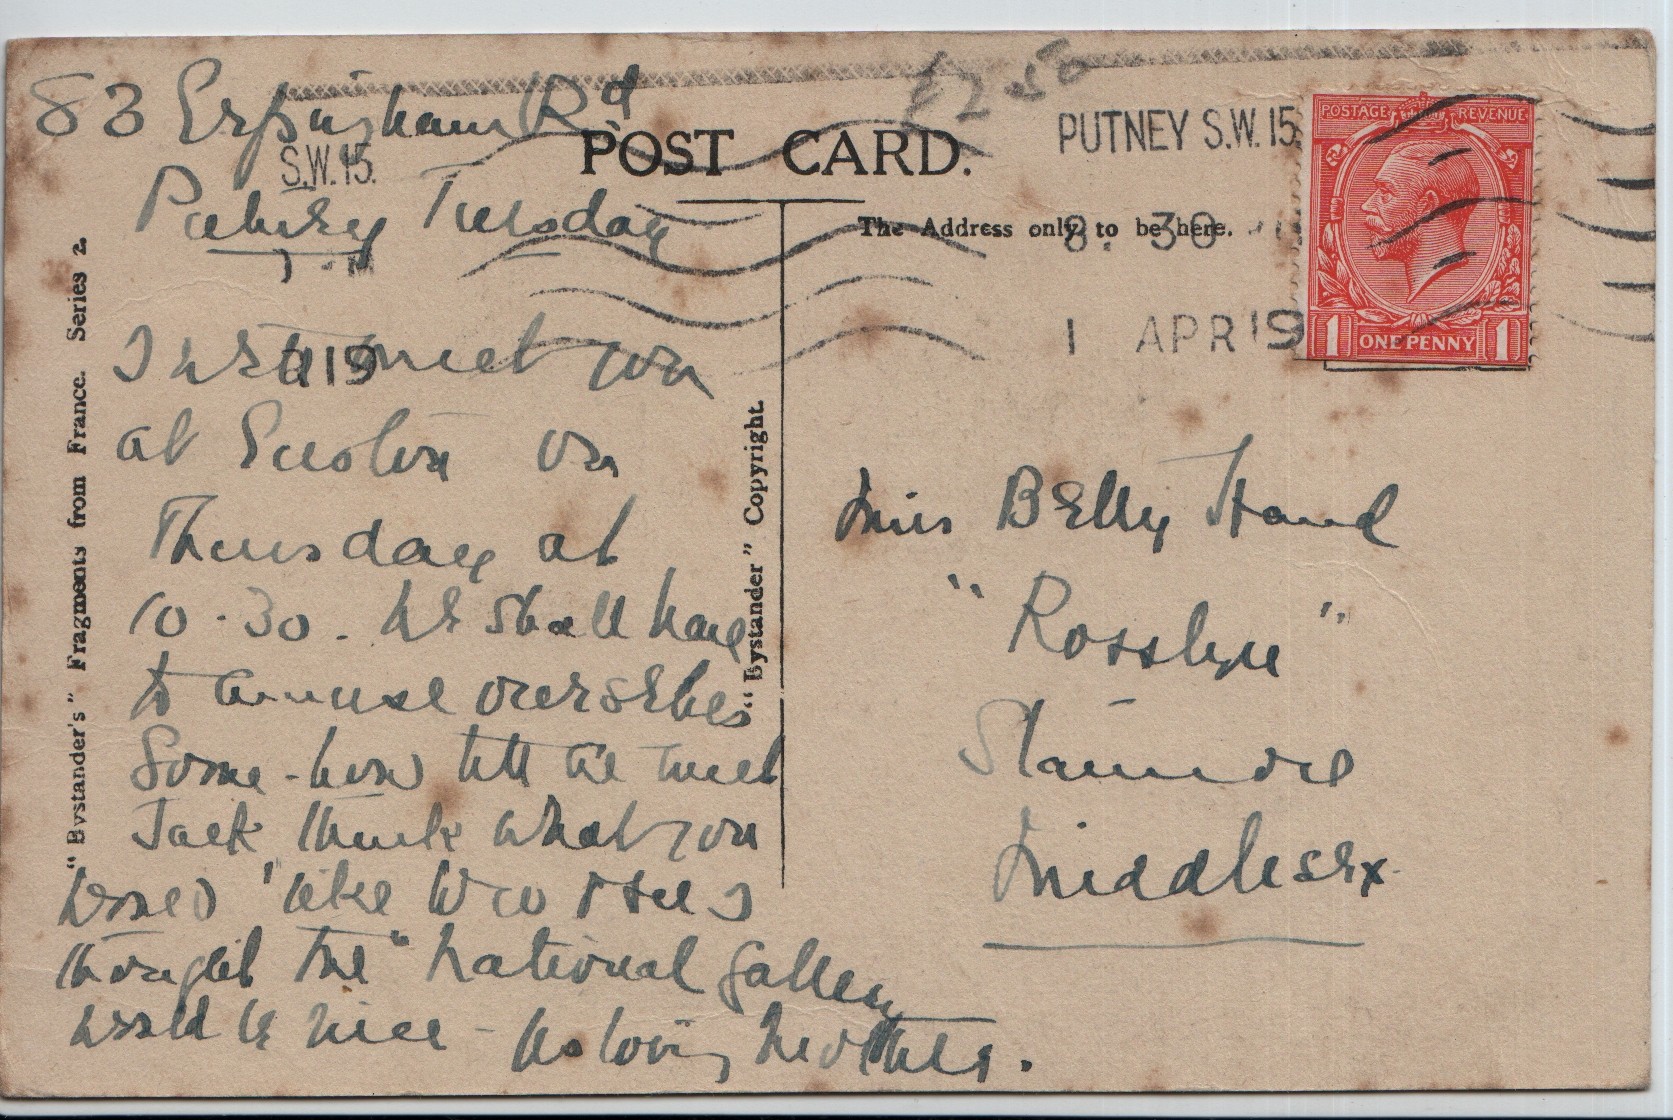 83 Erpingham Rd
Putney Tuesday
I will meet you
at Euston on
Thursday at
10.30. We shall have
to amuse ourselves
Some-how till we meet
Jack think what you
would like to do I
thought the "National Gallery
would be nice - Yr loving Mother.
POST CARD.
The Address only to be here.
£2.50
PUTNEY S.W.15
8. 30
1 APR 19
S.W.15.
19
POSTAGE REVENUE
1 ONE PENNY 1
Miss Betty Hand
"Rosslyn"
Stanmore
Middlesex
"Bystander's" Fragments from France. Series 2.
"Bystander" Copyright.